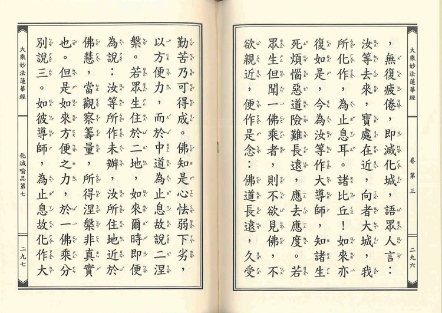 大乘妙法蓮華經
卷第三
二九六
，無復疲倦，即滅化城，語眾人言：
汝等去來，寶處在近，向者大城，我
所化作，為止息耳。諸比丘！如來亦
復如是，今為汝等作大導師，知諸生
死煩惱惡道險難長遠，應去應度。若
眾生但聞一佛乘者，則不欲見佛，不
欲親近，便作是念：佛道長遠，久受
勤苦乃可得成。佛知是心怯弱下劣，
以方便力，而於中道為止息故說二涅
槃。若眾生住於二地，如來爾時即便
為說：汝等所作未辦，汝所住地近於
佛慧，當觀察籌量，所得涅槃非真實
也。但是如來方便之力，於一佛乘分
別說三。如彼導師，為止息故化作大
大乘妙法蓮華經
化城喻品第七
二九七